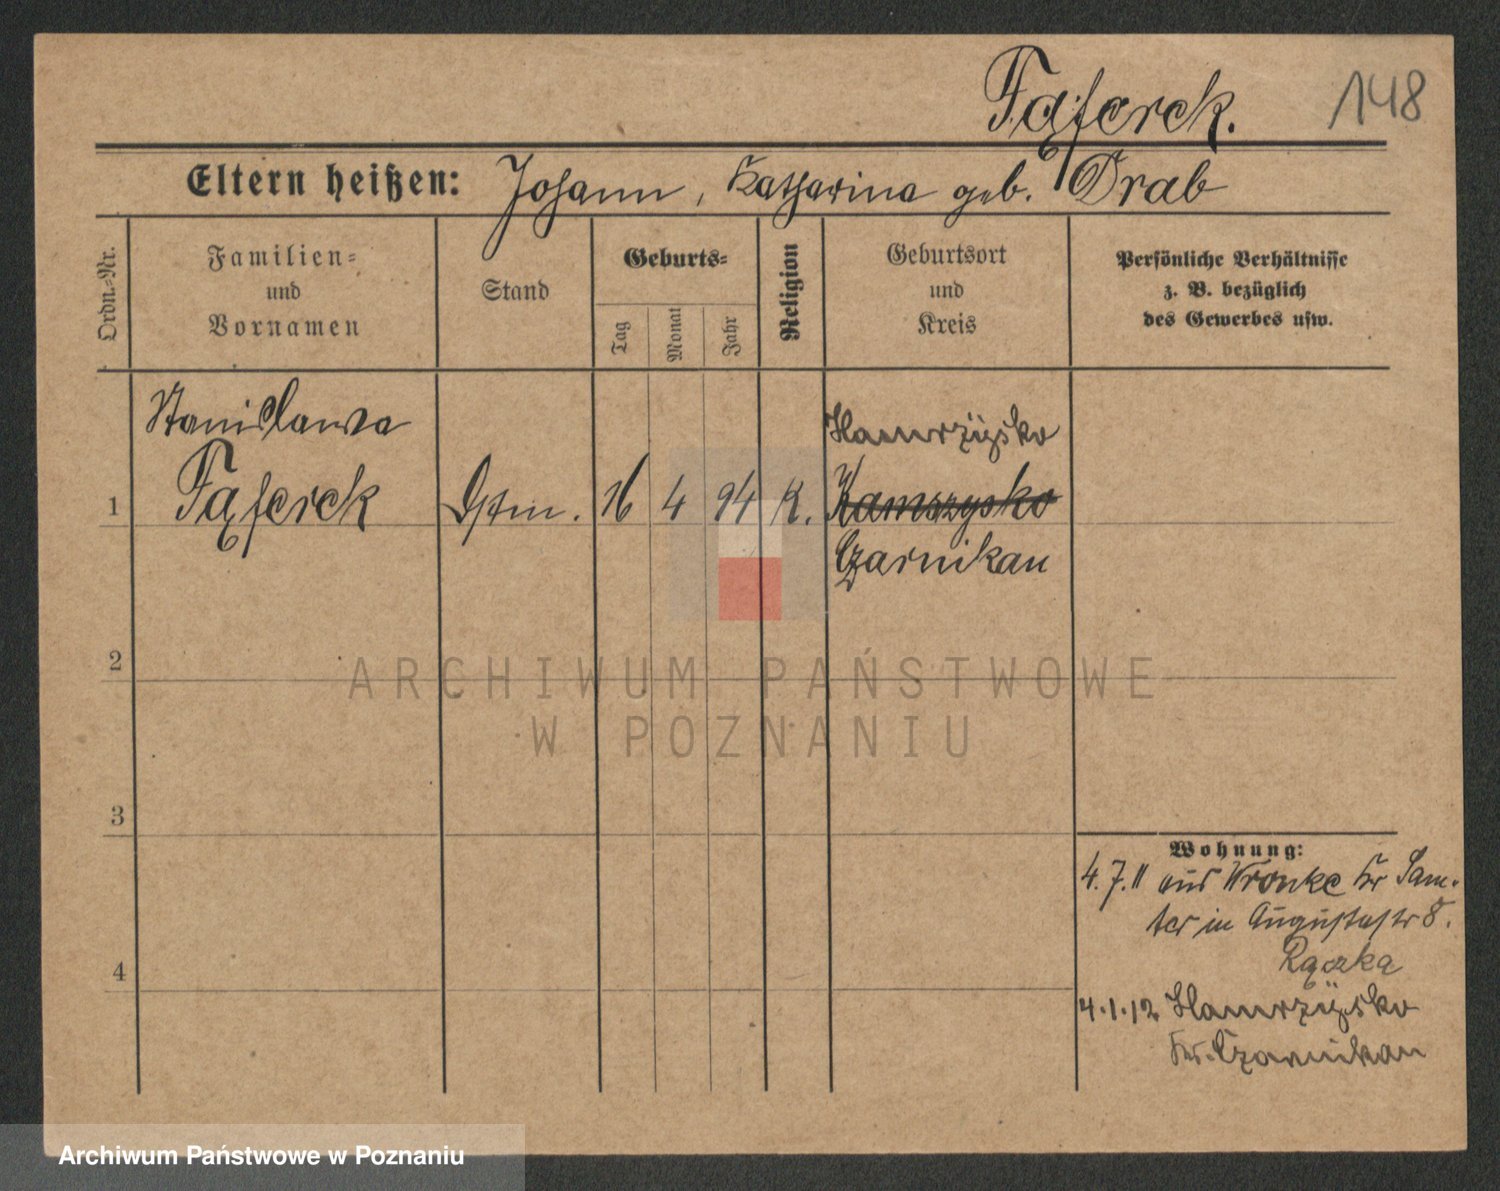 Fąferek. 148
Eltern heißen: Johann, Katharina geb. Drab
Ordn.-Nr.
Familien-
und
Vornamen
Stand
Geburts-
Tag
Monat
Jahr
Religion
Geburtsort
und
Kreis
Persönliche Verhältnisse
z. B. bezüglich
des Gewerbes usw.
Stanislawa
Fąferek
1
16 4 94 K.
Hamrzysko
Kamszysko
Czarnikau
2
3
4
Wohnung:
4.7.11 aus Wronke Kr Sam-
ter in Augustastr 8.
Rączka
4.1.12 Hamrzysko
Kr. Czarnikau
ARCHIWUM PAŃSTWOWE
W POZNANIU
Archiwum Państwowe w Poznaniu